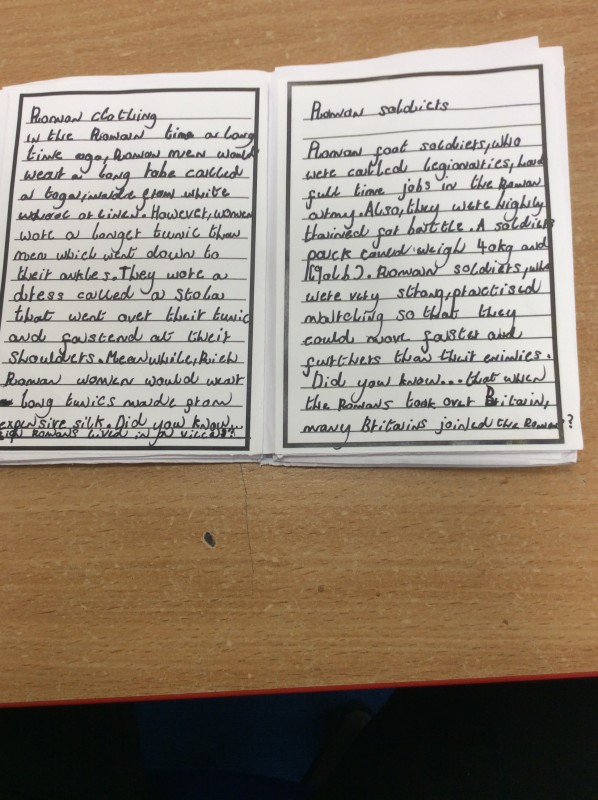 Roman clothing
in the Roman time a long
time ago, Roman men would
wear a long robe called
a toga, made from white
wool or linen. However, women
wore a longer tunic than
men which went down to
their ankles. They wore a
dress called a Stola
that went over their tunic
and fastend at their
shoulders. Meanwhile, Rich
Roman women would wear
long tunics made from
expensive silk. Did you know...
Romans lived in a villa?
Roman soldiers
Roman foot soldiers, who
were called legionaries, had
full time jobs in the Roman
army. Also, they were highly
trained for battle. A soldiers
pack could weigh 40kg and
(90lb). Roman soldiers, who
were very strong, practised
marching so that they
could move faster and
furthers than their enimies.
Did you know... that when
the Romans took over Britain,
many Britains joined the Romans?